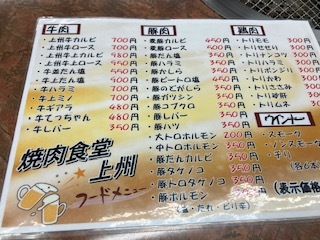 牛肉
・上州牛カルビ 700円
・上州牛ロース 700円
・上州牛上カルビ 980円
・上州牛上ロース 950円
・牛並だん塩 500円
・牛上だん塩 500円
・牛ハラミ 350円
・牛上ミノ 350円
・牛ギアラ 480円
・牛てっちゃん 480円
・牛レバー 350円
焼肉食堂
上州
フードメニュー
豚肉
・麦豚カルビ 350円
・麦豚ロース 350円
・豚たん塩 350円
・豚ハラミ 350円
・豚かしら 350円
・豚ピートロ塩 350円
・豚のどがしら 350円
・豚ガツシン 350円
・豚コブクロ 350円
・豚レバー 350円
・豚ハツ 350円
・大トロホルモン 200円
・中トロホルモン 350円
・豚だんカルビ 350円
・豚タケノコ 350円
・豚トロタケノコ 350円
・豚ホルモン 350円
(塩・だれ・ピリ辛)
鶏肉
・トリモモ 300円
・トリせせり 300円
・トリナンコツ
・トリハラミ
・トリボンジリ
・トリかわ
・トリささみ
・トリ砂肝
・トリムネ
ウイントー
・スモーク
・ノンスモーク
・チリ
(各6本)
(表示価格